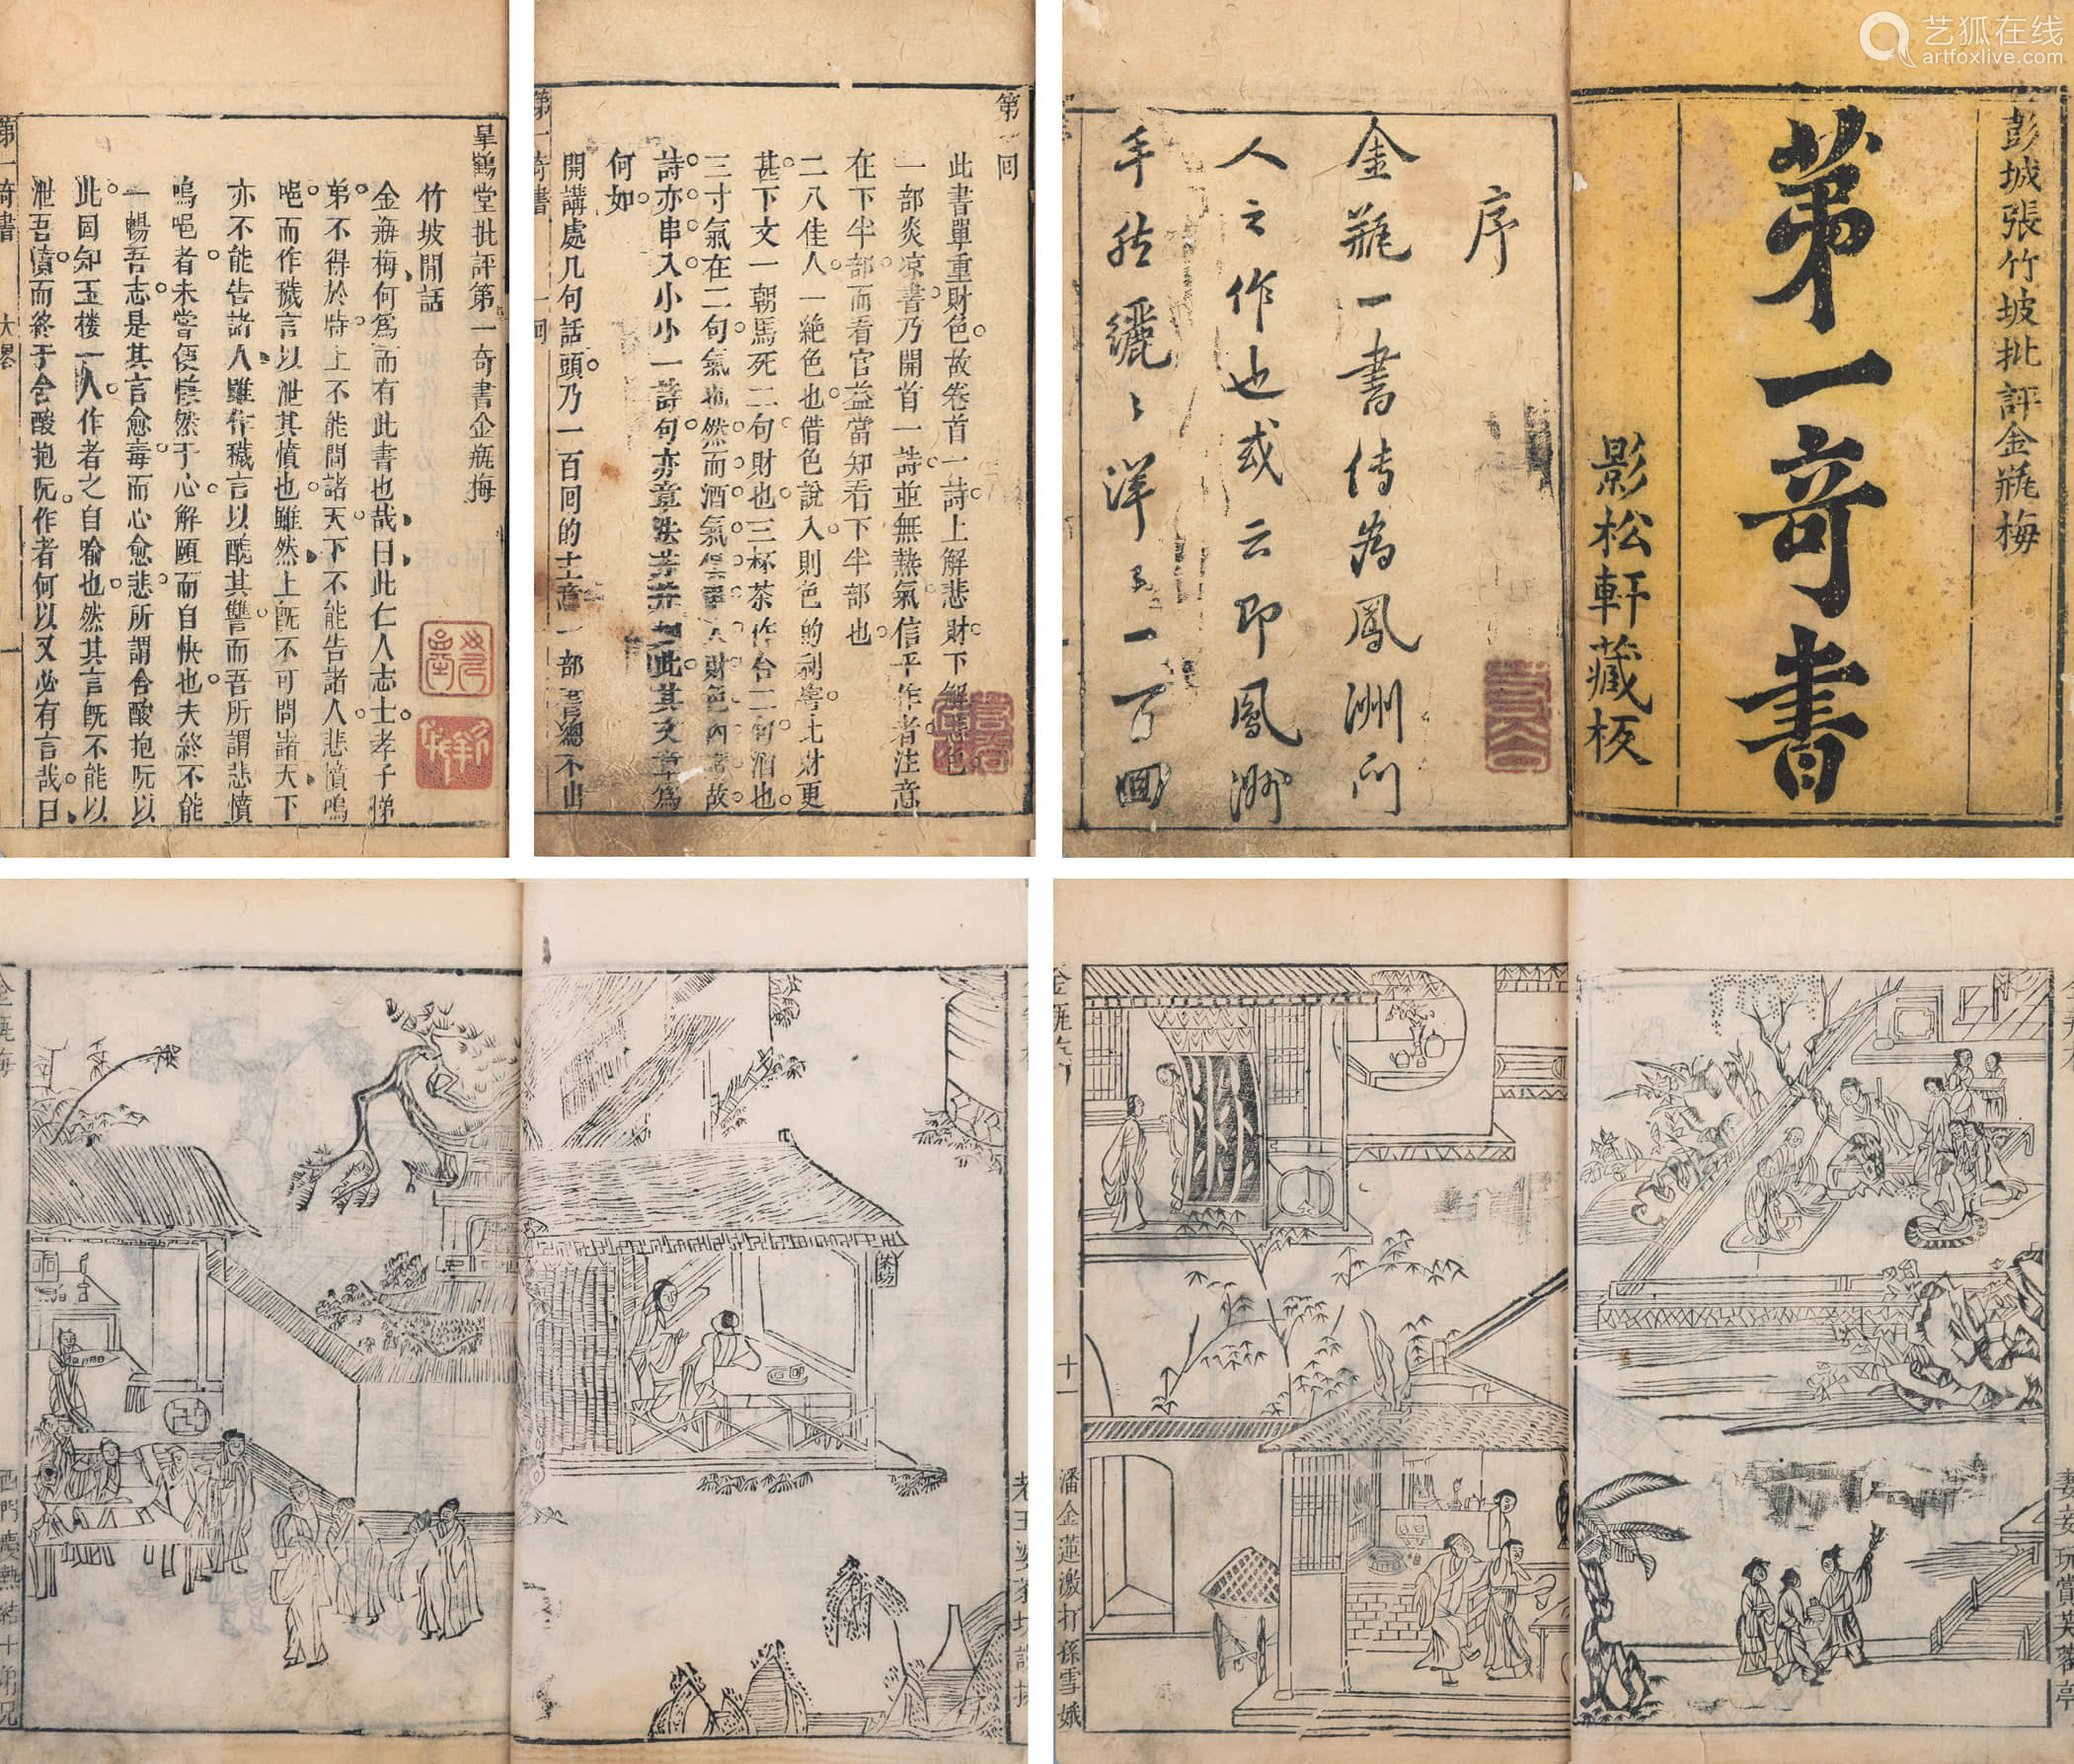 艺狐在线
artfoxlive.com
彭城張竹坡批評金瓶梅
第一奇書
影松軒藏板
序
金瓶一書传為鳳洲门
人之作也或云即鳳洲
手然纚〻洋〻一百回
第一回
此書單重財色故卷首一詩上解悲財下解悲色
一部炎凉書乃開首一詩並無熱氣信乎作者注意
在下半部而看官益當知看下半部也
二八佳人一絶色也借色說入則色的利害比財更
甚下文一朝馬死二句財也三杯茶作合二句酒也
三寸氣在二句氣也然而酒氣俱串入財色内講故
詩亦串入小小一詩句亦章法井井如此其文章為
何如
開講處几句話頭乃一百回的主意一部書總不出
第一奇書
一回
皐鶴堂批評第一奇書金瓶梅
竹坡閒話
金瓶梅何為而有此書也哉曰此仁人志士孝子悌
弟不得於時上不能問諸天下不能告諸人悲憤嗚
唈而作穢言以泄其憤也雖然上既不可問諸天下
亦不能告諸人雖作穢言以醜其讐而吾所謂悲憤
嗚唈者未嘗便慊然于心解頤而自快也夫終不能
一暢吾志是其言愈毒而心愈悲所謂含酸抱阮以
此固知玉楼一人作者之自喻也然其言既不能以
泄吾憤而終于含酸抱阮作者何以又必有言哉曰
第一奇書
大畧
一
妻妾玩賞芙蓉亭
金瓶梅
十一
潘金蓮激打孫雪娥
老王婆茶坊說技
茶坊
金瓶梅
西門慶熱結十弟兄